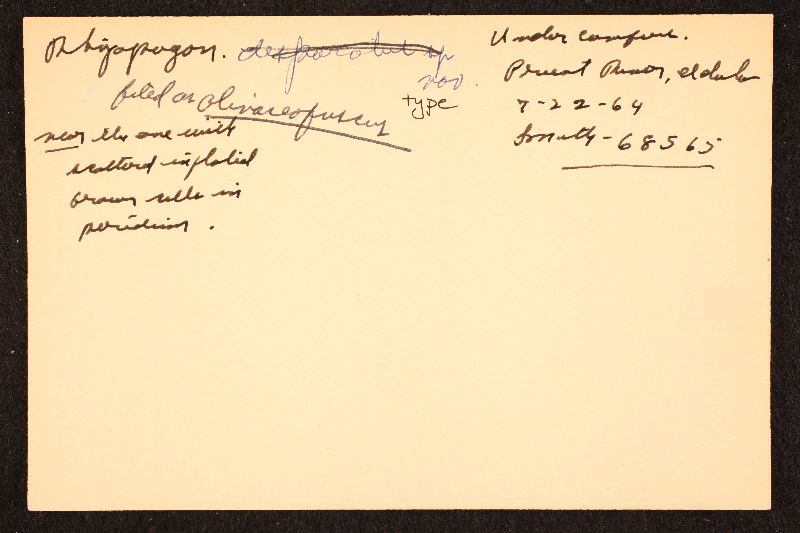 Rhizopogon. desparatus sp
nov.
filed as olivaceofuscus
type
near the one with
scattered inflated
brown cells in
peridium.
Under conifers.
Priest River, Idaho
7-22-64
Smith-68565